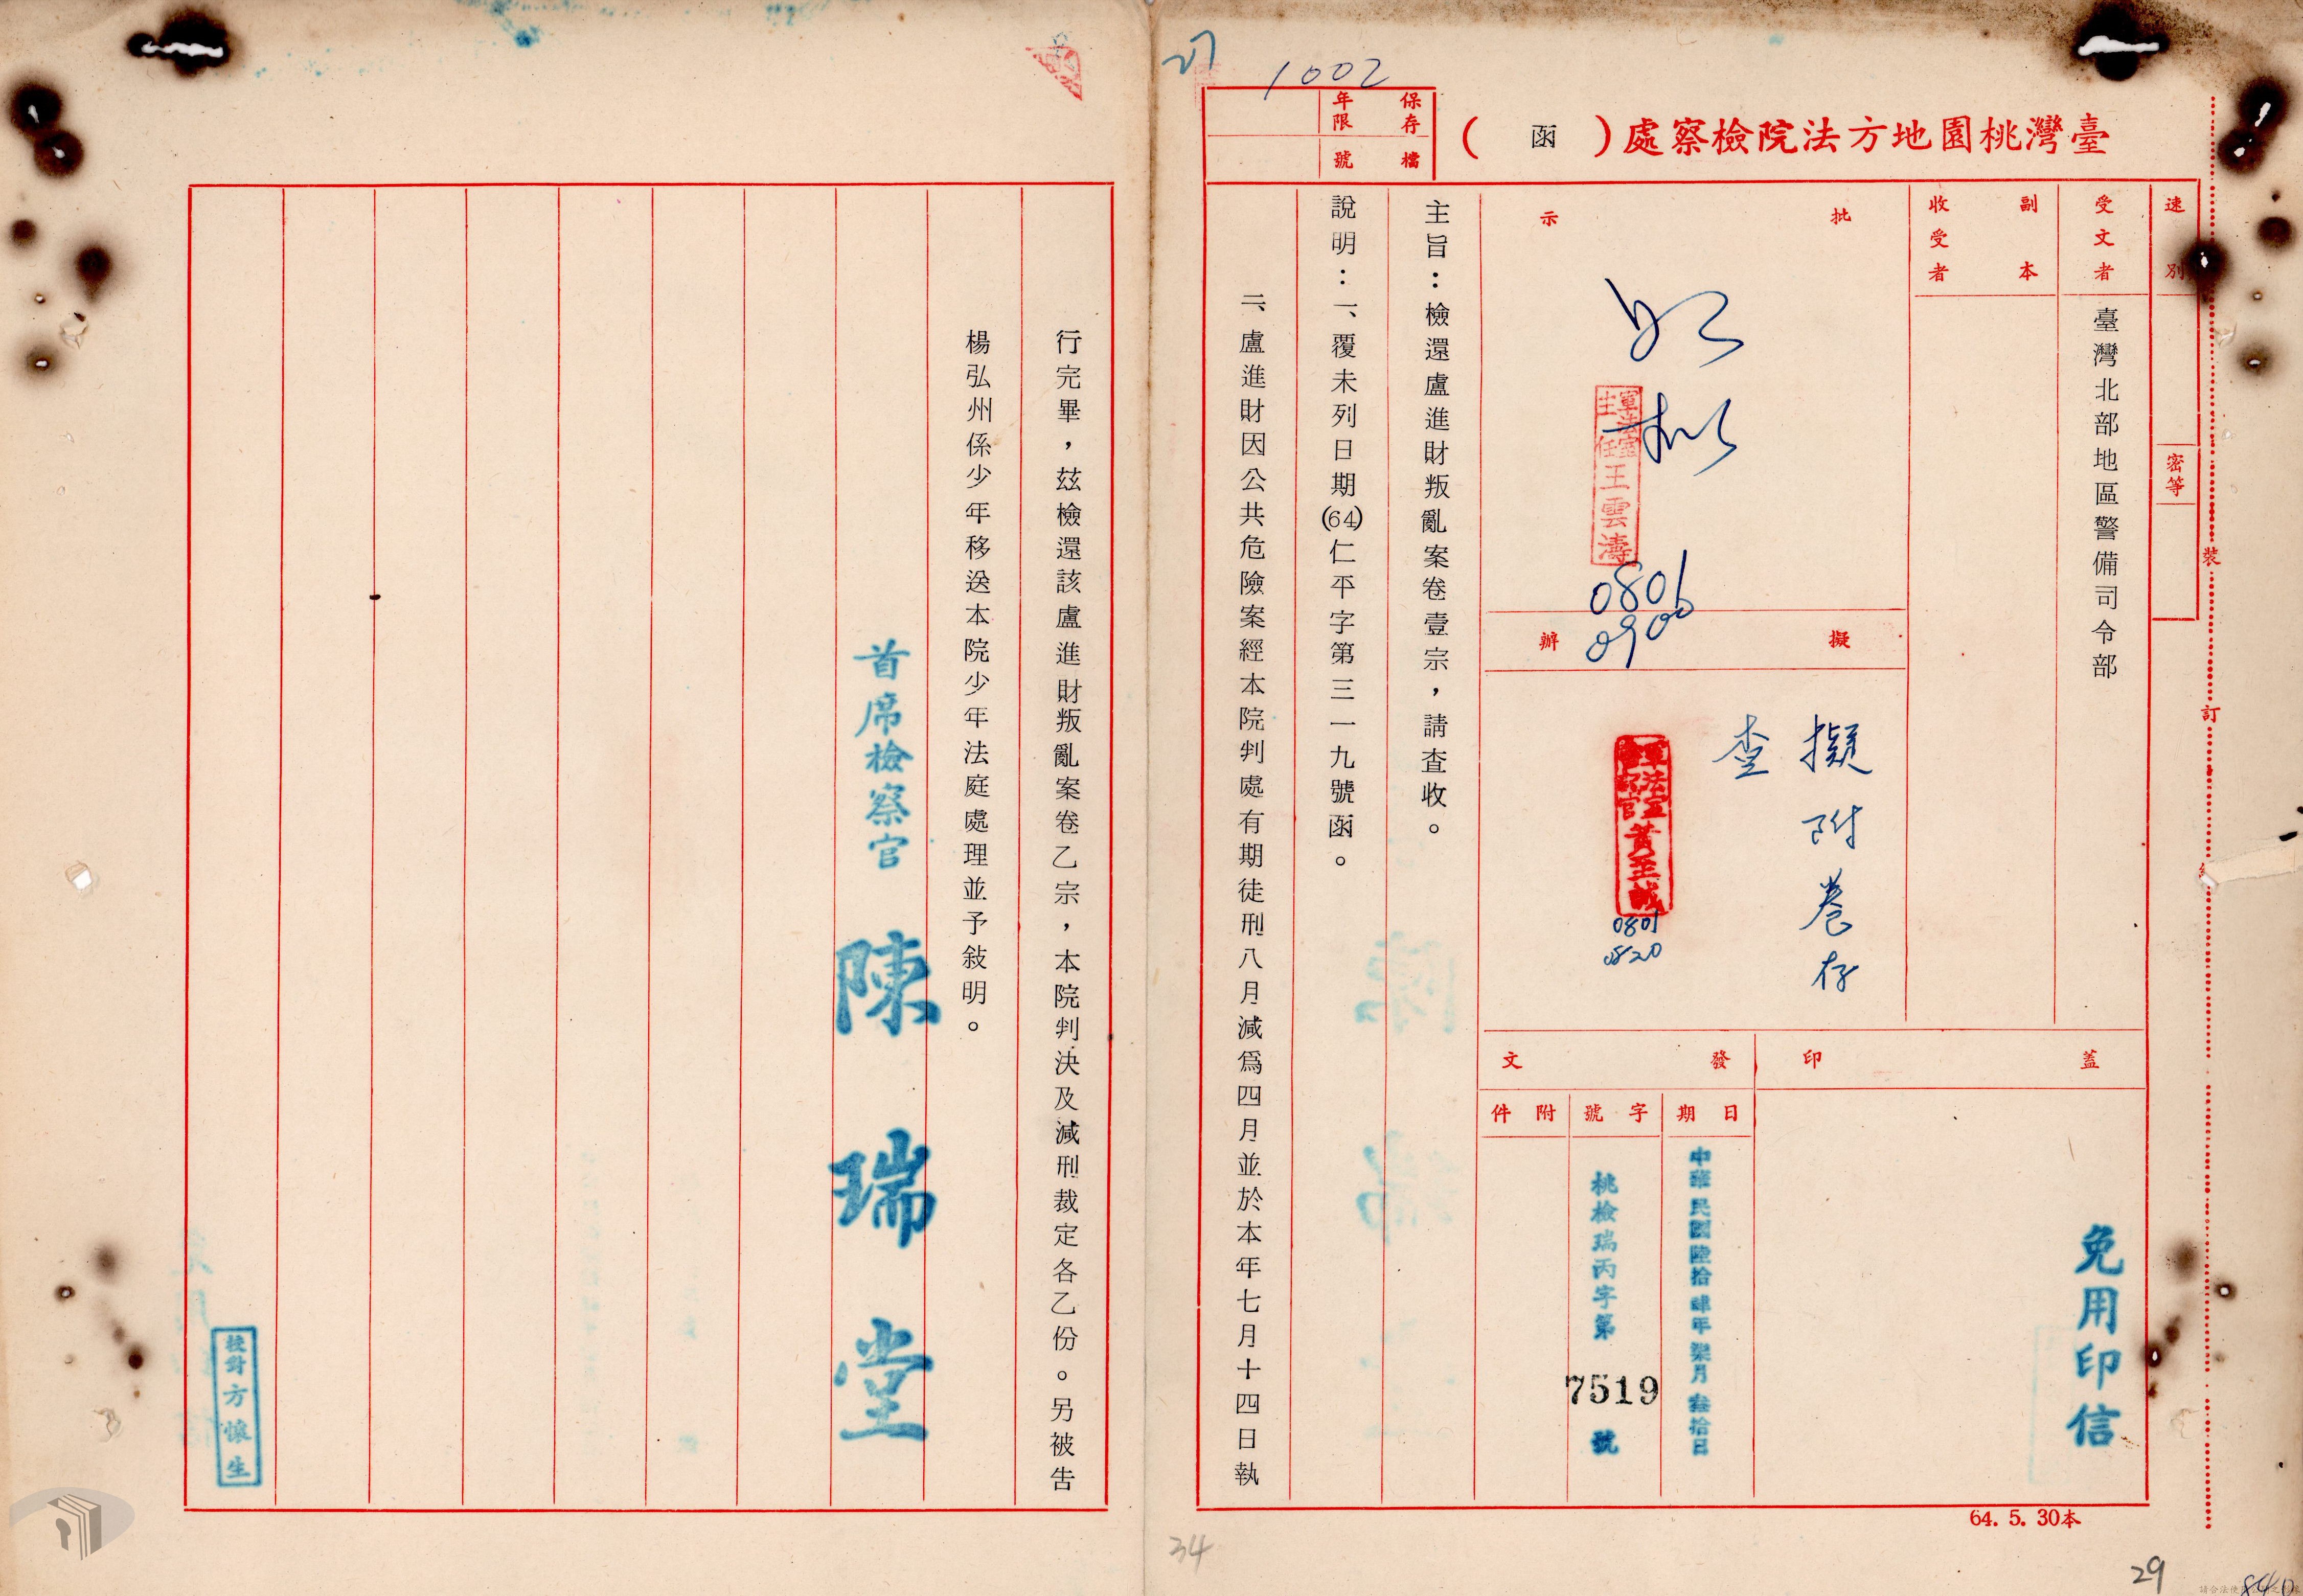 27
1002
臺灣桃園地方法院檢察處（函）
保存年限
檔號
速別
密等
受文者
臺灣北部地區警備司令部
副本收受者
批示
如擬
軍法室主任王雲濤
0806
0900
擬辦
擬附卷存
查
黃至誠
0801
0820
蓋印
免用印信
發文
日期
中華民國陸拾肆年柒月叁拾日
字號
桃檢瑞丙字第7519號
附件
主旨：檢還盧進財叛亂案卷壹宗，請查收。
說明：一、覆未列日期(64)仁平字第三一九號函。
二、盧進財因公共危險案經本院判處有期徒刑八月減爲四月並於本年七月十四日執
行完畢，玆檢還該盧進財叛亂案卷乙宗，本院判決及減刑裁定各乙份。另被告
楊弘州係少年移送本院少年法庭處理並予敍明。
首席檢察官 陳瑞堂
校對方懷生
裝
訂
64. 5. 30本
34
29